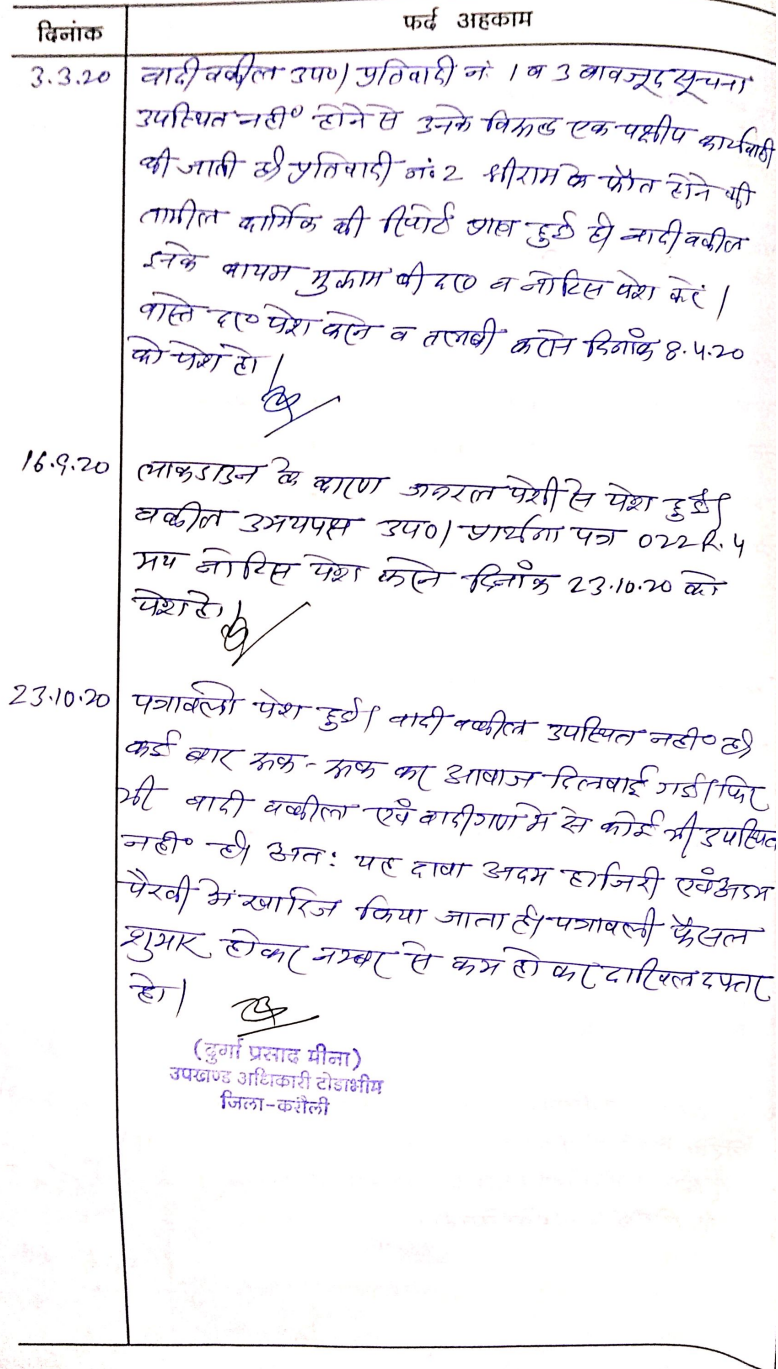 दिनांक
फर्द अहकाम
3.3.20 वादी वकील उप०। प्रतिवादी नं 1 व 3 बावजूद सूचना
उपस्थित नहीं होने से उनके विरूद्ध एक पक्षीय कार्यवाही
की जाती है। प्रतिवादी नं० 2 श्रीराम के फौत होने की
तामील कार्मिक की रिपोर्ट प्राप्त हुई है। वादी वकील
इनके वायम मुकाम की द० व नोटिस पेश करें।
वास्ते द० पेश करने व तलबी कराने दिनांक 8.4.20
को पेश हो।
16.9.20 लाकडाउन के कारण जनरल पेशी से पेश हुई।
वकील उभयपक्ष उप०। प्रार्थना पत्र O22R.4
मय नोटिस पेश करने दिनांक 23.10.20 को
पेश हो।
23.10.20 पत्रावली पेश हुई। वादी वकील उपस्थित नहीं है।
कई बार रूक-रूक कर आवाज दिलवाई गई। फिर
भी वादी वकील एवं वादीगण में से कोई भी उपस्थित
नहीं है। अतः यह दावा अदम हाजिरी एवं अदम
पैरवी में खारिज किया जाता है। पत्रावली फैसल
शुमार होकर नम्बर से कम हो कर दाखिल दफ्तर
हो।
(दुर्गा प्रसाद मीना)
उपखण्ड अधिकारी टोडाभीम
जिला-करौली